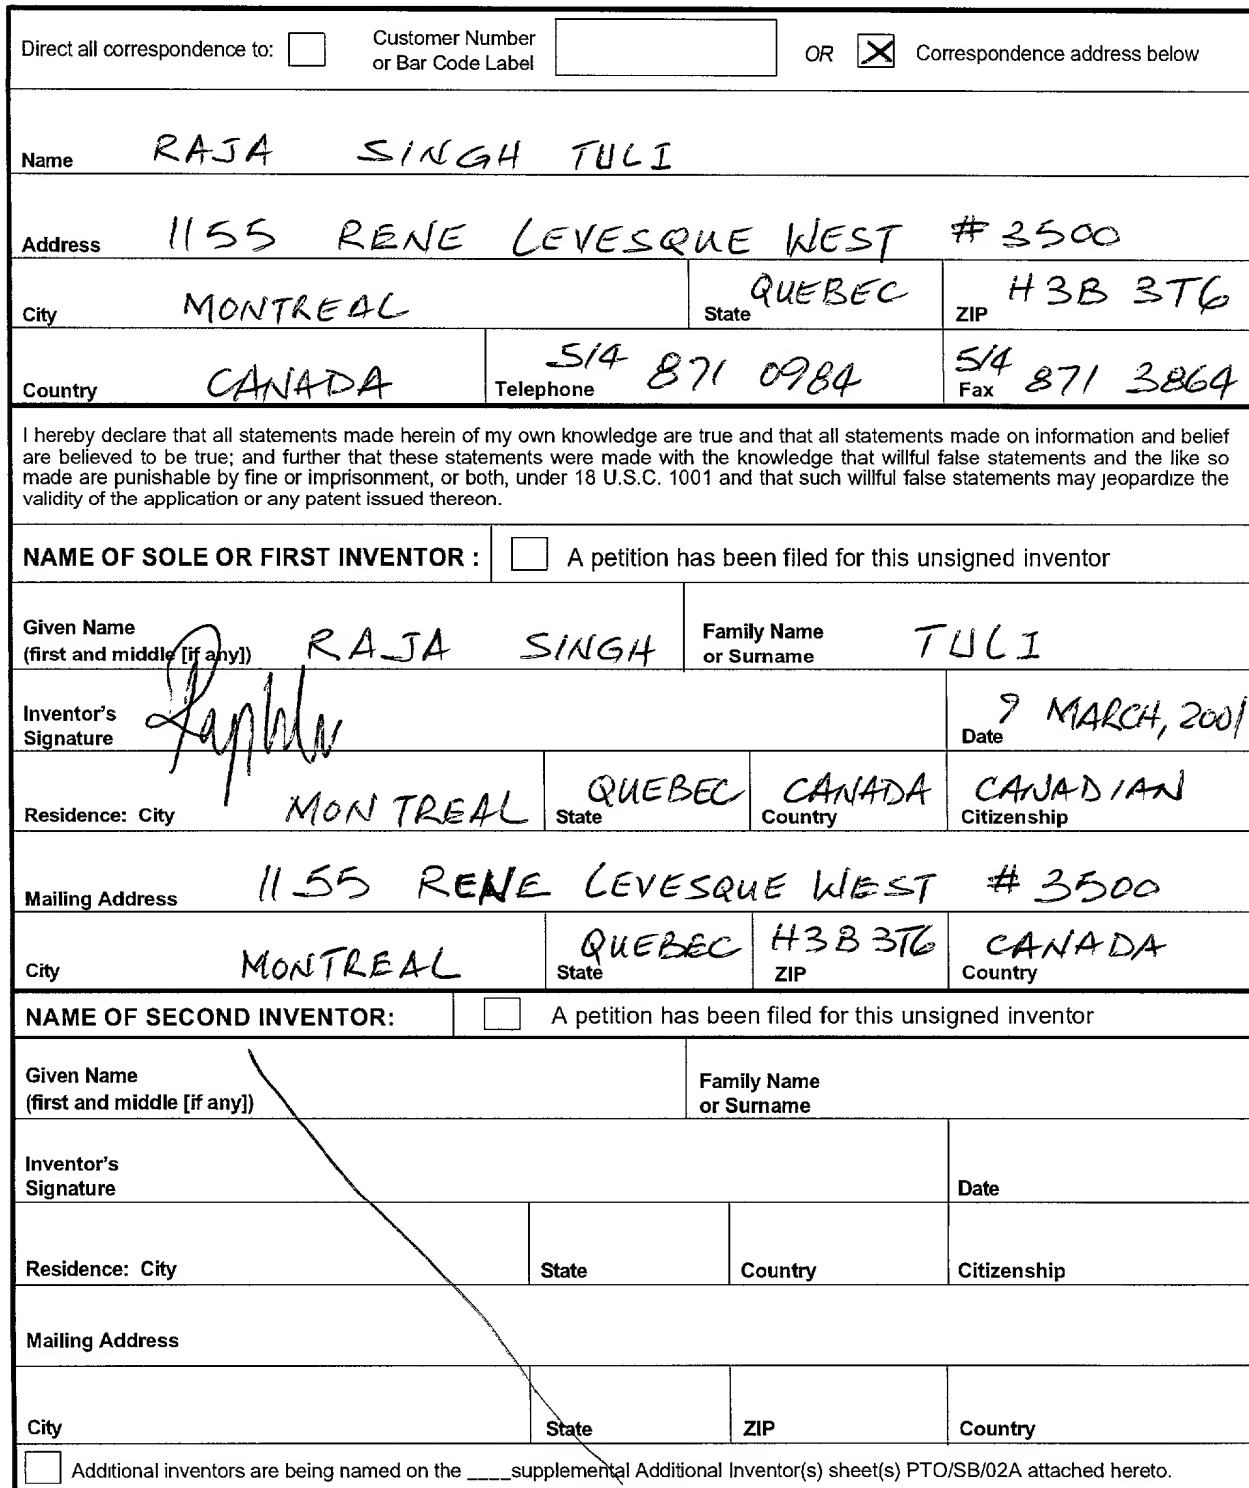 Direct all correspondence to: Customer Number or Bar Code Label OR X Correspondence address below
Name RAJA SINGH TULI
Address 1155 RENE LEVESQUE WEST # 3500
City MONTREAL State QUEBEC ZIP H3B 3T6
Country CANADA Telephone 514 871 0984 Fax 514 871 3864
I hereby declare that all statements made herein of my own knowledge are true and that all statements made on information and belief
are believed to be true; and further that these statements were made with the knowledge that willful false statements and the like so
made are punishable by fine or imprisonment, or both, under 18 U.S.C. 1001 and that such willful false statements may jeopardize the
validity of the application or any patent issued thereon.
NAME OF SOLE OR FIRST INVENTOR : A petition has been filed for this unsigned inventor
Given Name
(first and middle [if any]) RAJA SINGH Family Name or Surname TULI
Inventor's
Signature Date 9 MARCH, 2001
Residence: City MONTREAL State QUEBEC Country CANADA Citizenship CANADIAN
Mailing Address 1155 RENE LEVESQUE WEST # 3500
City MONTREAL State QUEBEC ZIP H3B 3T6 Country CANADA
NAME OF SECOND INVENTOR: A petition has been filed for this unsigned inventor
Given Name
(first and middle [if any]) Family Name or Surname
Inventor's
Signature Date
Residence: City State Country Citizenship
Mailing Address
City State ZIP Country
Additional inventors are being named on the ____supplemental Additional Inventor(s) sheet(s) PTO/SB/02A attached hereto.